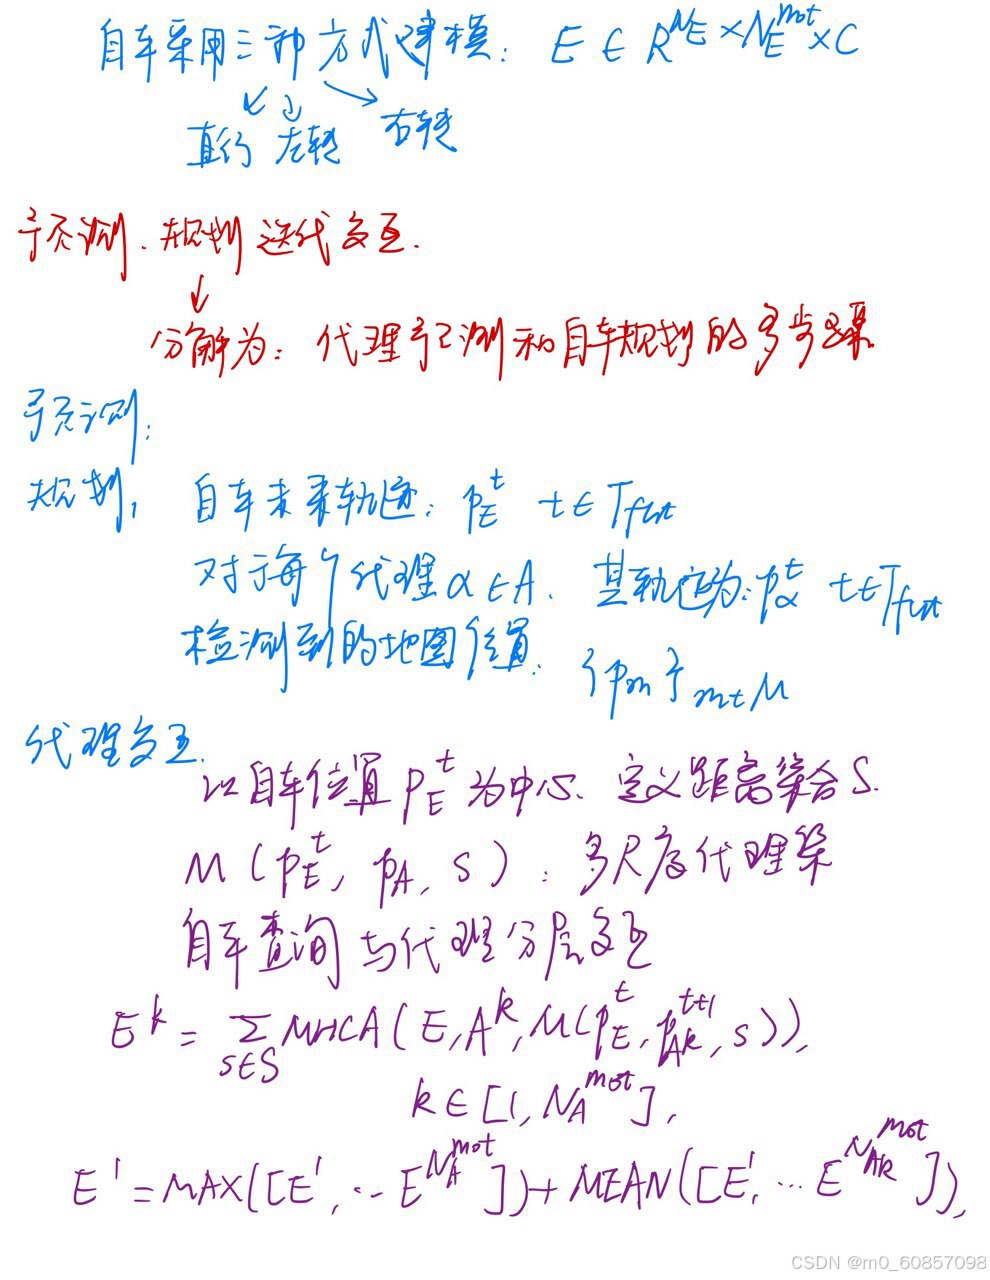 自车采用三种方式建模: E ∈ R^{N_E × N_E^{mot} × C}
直行 左转 右转
预测、规划迭代交互.
分解为: 代理预测和自车规划的多步骤
预测:
规划, 自车未来轨迹: p_E^t t∈T_{fut}
对于每个代理α∈A. 其轨迹为: p_α^t t∈T_{fut}
检测到的地图位置: {p_m}_{m∈M}
代理交互.
以自车位置 p_E^t 为中心、定义距离集合S.
M(p_E^t, p_A, s): 多尺度代理集
自车查询与代理分层交互
E^k = Σ_{s∈S} MHCA(E, A^k, M(p_E^t, p_{A^k}^{t+1}, s)),
k∈[1, N_A^{mot}],
E' = MAX([E^1, … E^{N_A^{mot}}]) + MEAN([E^1, … E^{N_{AR}^{mot}}]),
CSDN @m0_60857098